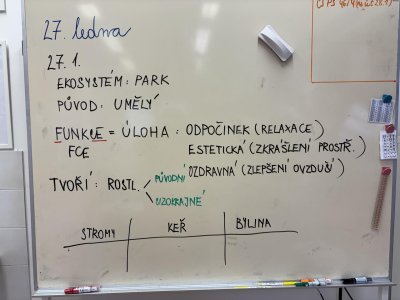 27. ledna
27.1.
EKOSYSTÉM: PARK
PŮVOD: UMĚLÝ
FUNKCE = ÚLOHA: ODPOČINEK (RELAXACE)
FCE ESTETICKÁ (ZKRÁŠLENÍ PROSTŘ.)
OZDRAVNÁ (ZLEPŠENÍ OVZDUŠÍ)
TVOŘÍ: ROSTL. PŮVODNÍ
CIZOKRAJNÉ
STROMY KEŘ BYLINA